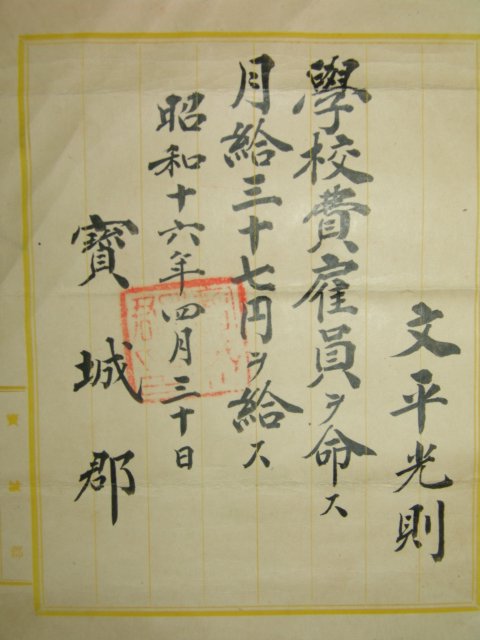 文平光則
學校費雇員ヲ命ス
月給三十七円ヲ給ス
昭和十六年四月三十日
寳城郡
寳城郡